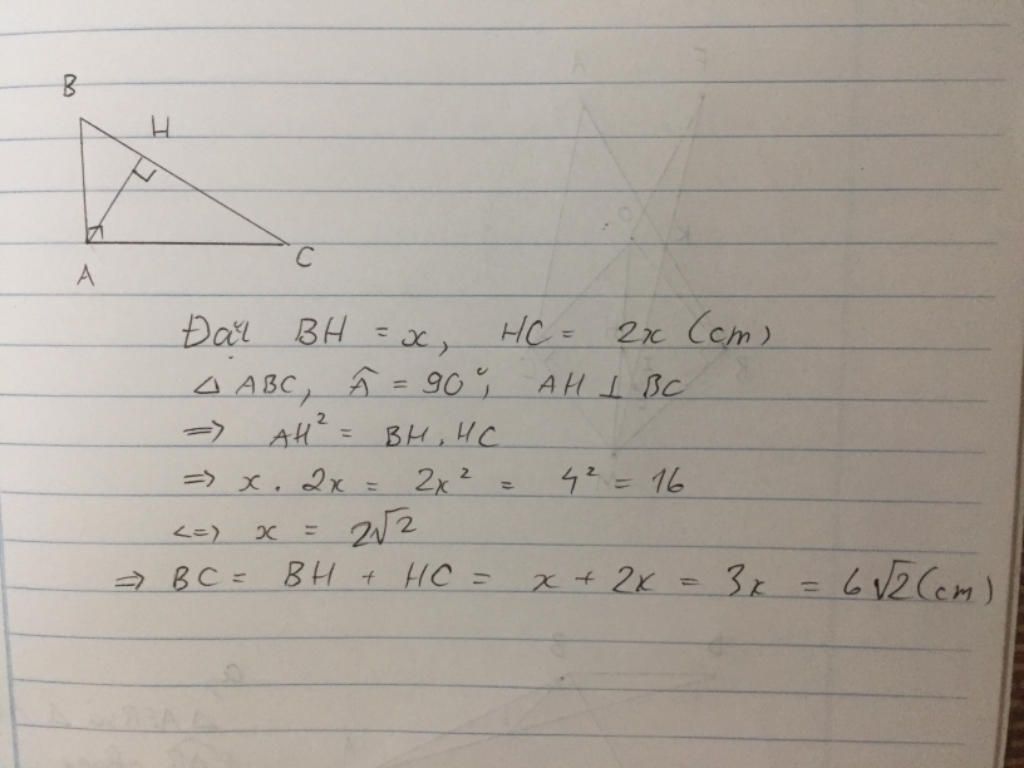 B
H
A
C
Đặt BH = x, HC = 2x (cm)
△ ABC, Â = 90°, AH ⊥ BC
=> AH² = BH . HC
=> x . 2x = 2x² = 4² = 16
<=> x = 2√2
=> BC = BH + HC = x + 2x = 3x = 6√2 (cm)